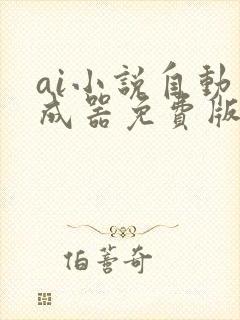 ai小説自動
成器免費版
伯薵奇